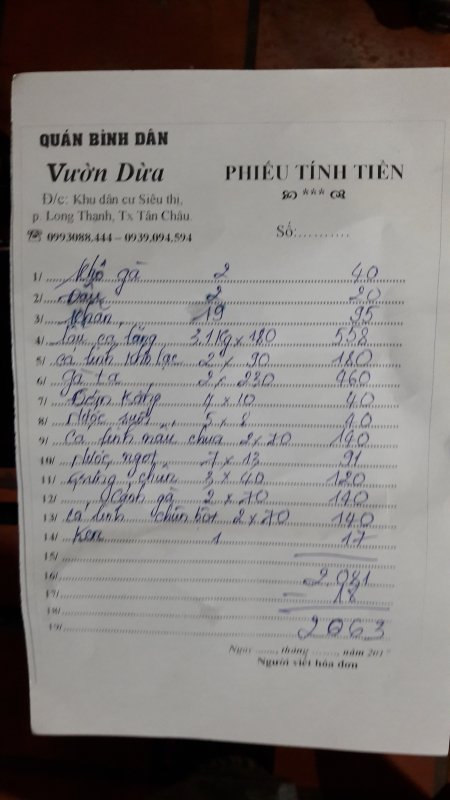 QUÁN BÌNH DÂN
Vườn Dừa
PHIẾU TÍNH TIỀN
***
Đ/c: Khu dân cư Siêu thị,
p. Long Thạnh, Tx Tân Châu.
☎ 0993088.444 – 0939.094.594
Số:..........
1/ Khô gà 2 40
2/ Đậu 2 20
3/ Khăn 19 95
4/ Lẩu cá lăng 3,1kg x 180 558
5/ cá linh kho lạc 2 x 90 180
6/ gà ta 2 x 230 460
7/ 4 x 10 40
8/ nước suối 5 x 8 40
9/ cá linh nấu chua 2 x 70 140
10/ nước ngọt 7 x 13 91
11/ chưn 3 x 40 120
12/ cánh gà 2 x 70 140
13/ cá linh chiên bột 2 x 70 140
14/ Ken 1 17
15/
16/ 2.081
17/ 18
18/
19/ 2063
Ngày ......, tháng ......., năm 201
Người viết hóa đơn